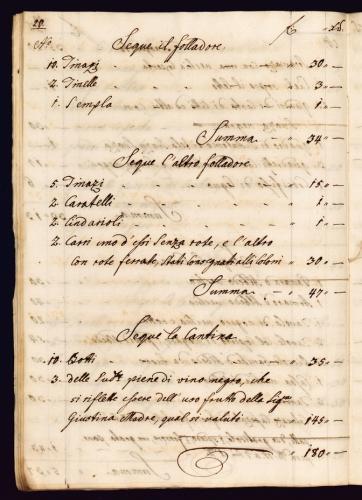 20.
Seque il folladore
10. Tinazi " 30 " —
2. Tinelle " 3 " —
1. Sempla " 1 " —
Summa " 34 " —
Seque l'altro folladore
5. Tinazi " 15 " —
2. Caratelli " 1 " —
2. " 1 " —
2. Carri uno d'essi senza rote, e l'altro
con rote ferrate, stati consegnati alli Coloni " 30 " —
Summa " 47 " —
Seque la Cantina
10. Botti " 35 " —
3. delle sud.te piene di vino negro, che
si riflette essere dell'uso frutto della Sig.ra
Giustina Madre, qual si valuti " 145 " —
180 " —